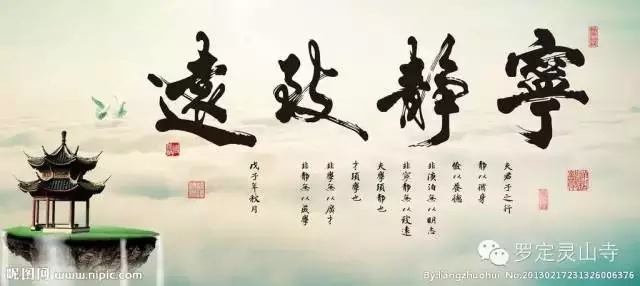 寧靜致遠
夫君子之行
靜以修身
儉以養德
非淡泊無以明志
非寧靜無以致遠
夫學須靜也
才須學也
非學無以廣才
非靜無以成學
戊子年秋月
罗定灵山寺
昵图网 www.nipic.com
By:liangzhuohui No.20130217231326006376